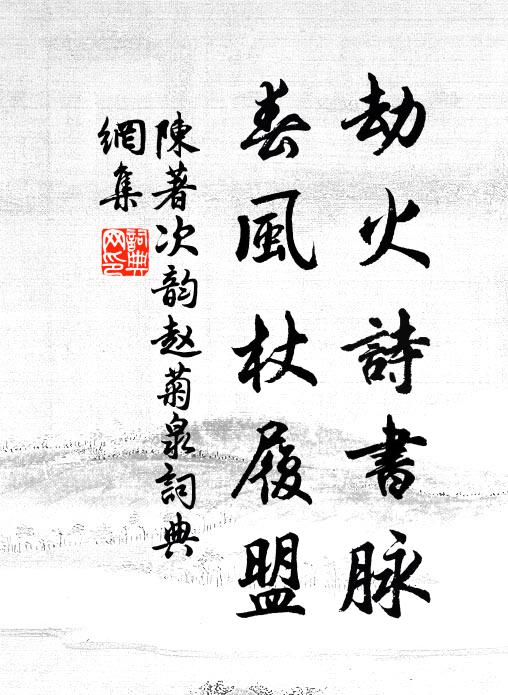 劫火詩書脉
春風杖履盟
陳著次韵赵菊泉詞典
網集
詞典網印